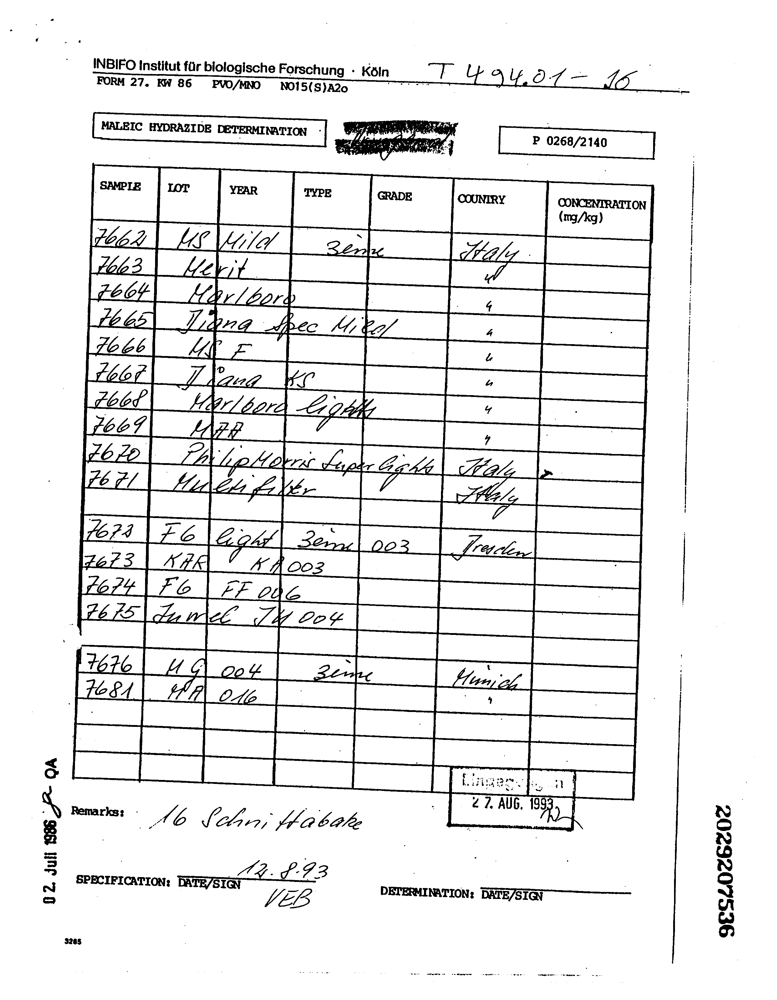 INBIFO Institut für biologische Forschung · Köln T 494.01-16
FORM 27. KW 86 PVO/MNO N015(S)A2o
MALEIC HYDRAZIDE DETERMINATION
P 0268/2140
SAMPLE LOT YEAR TYPE GRADE COUNTRY CONCENTRATION
(mg/kg)
7662 MS Mild 3ème Italy
7663 Merit "
7664 Marlboro "
7665 Diana Spec Mild "
7666 MS F "
7667 Diana KS "
7668 Marlboro lights "
7669 "
7670 Philip Morris Super lights Italy
7671 Multifilter Italy
7672 F6 light 3ème 003 Dresden
7673 KAR KA003
7674 F6 FF 006
7675 Juwel JU 004
7676 MG 004 3ème Münich
7681 MA 016 "
27. AUG. 1993
Remarks: 16 Schnittabake
SPECIFICATION: DATE/SIGN 12.8.93
VEB
DETERMINATION: DATE/SIGN
3265
02. Juli 1986 QA
2029207536